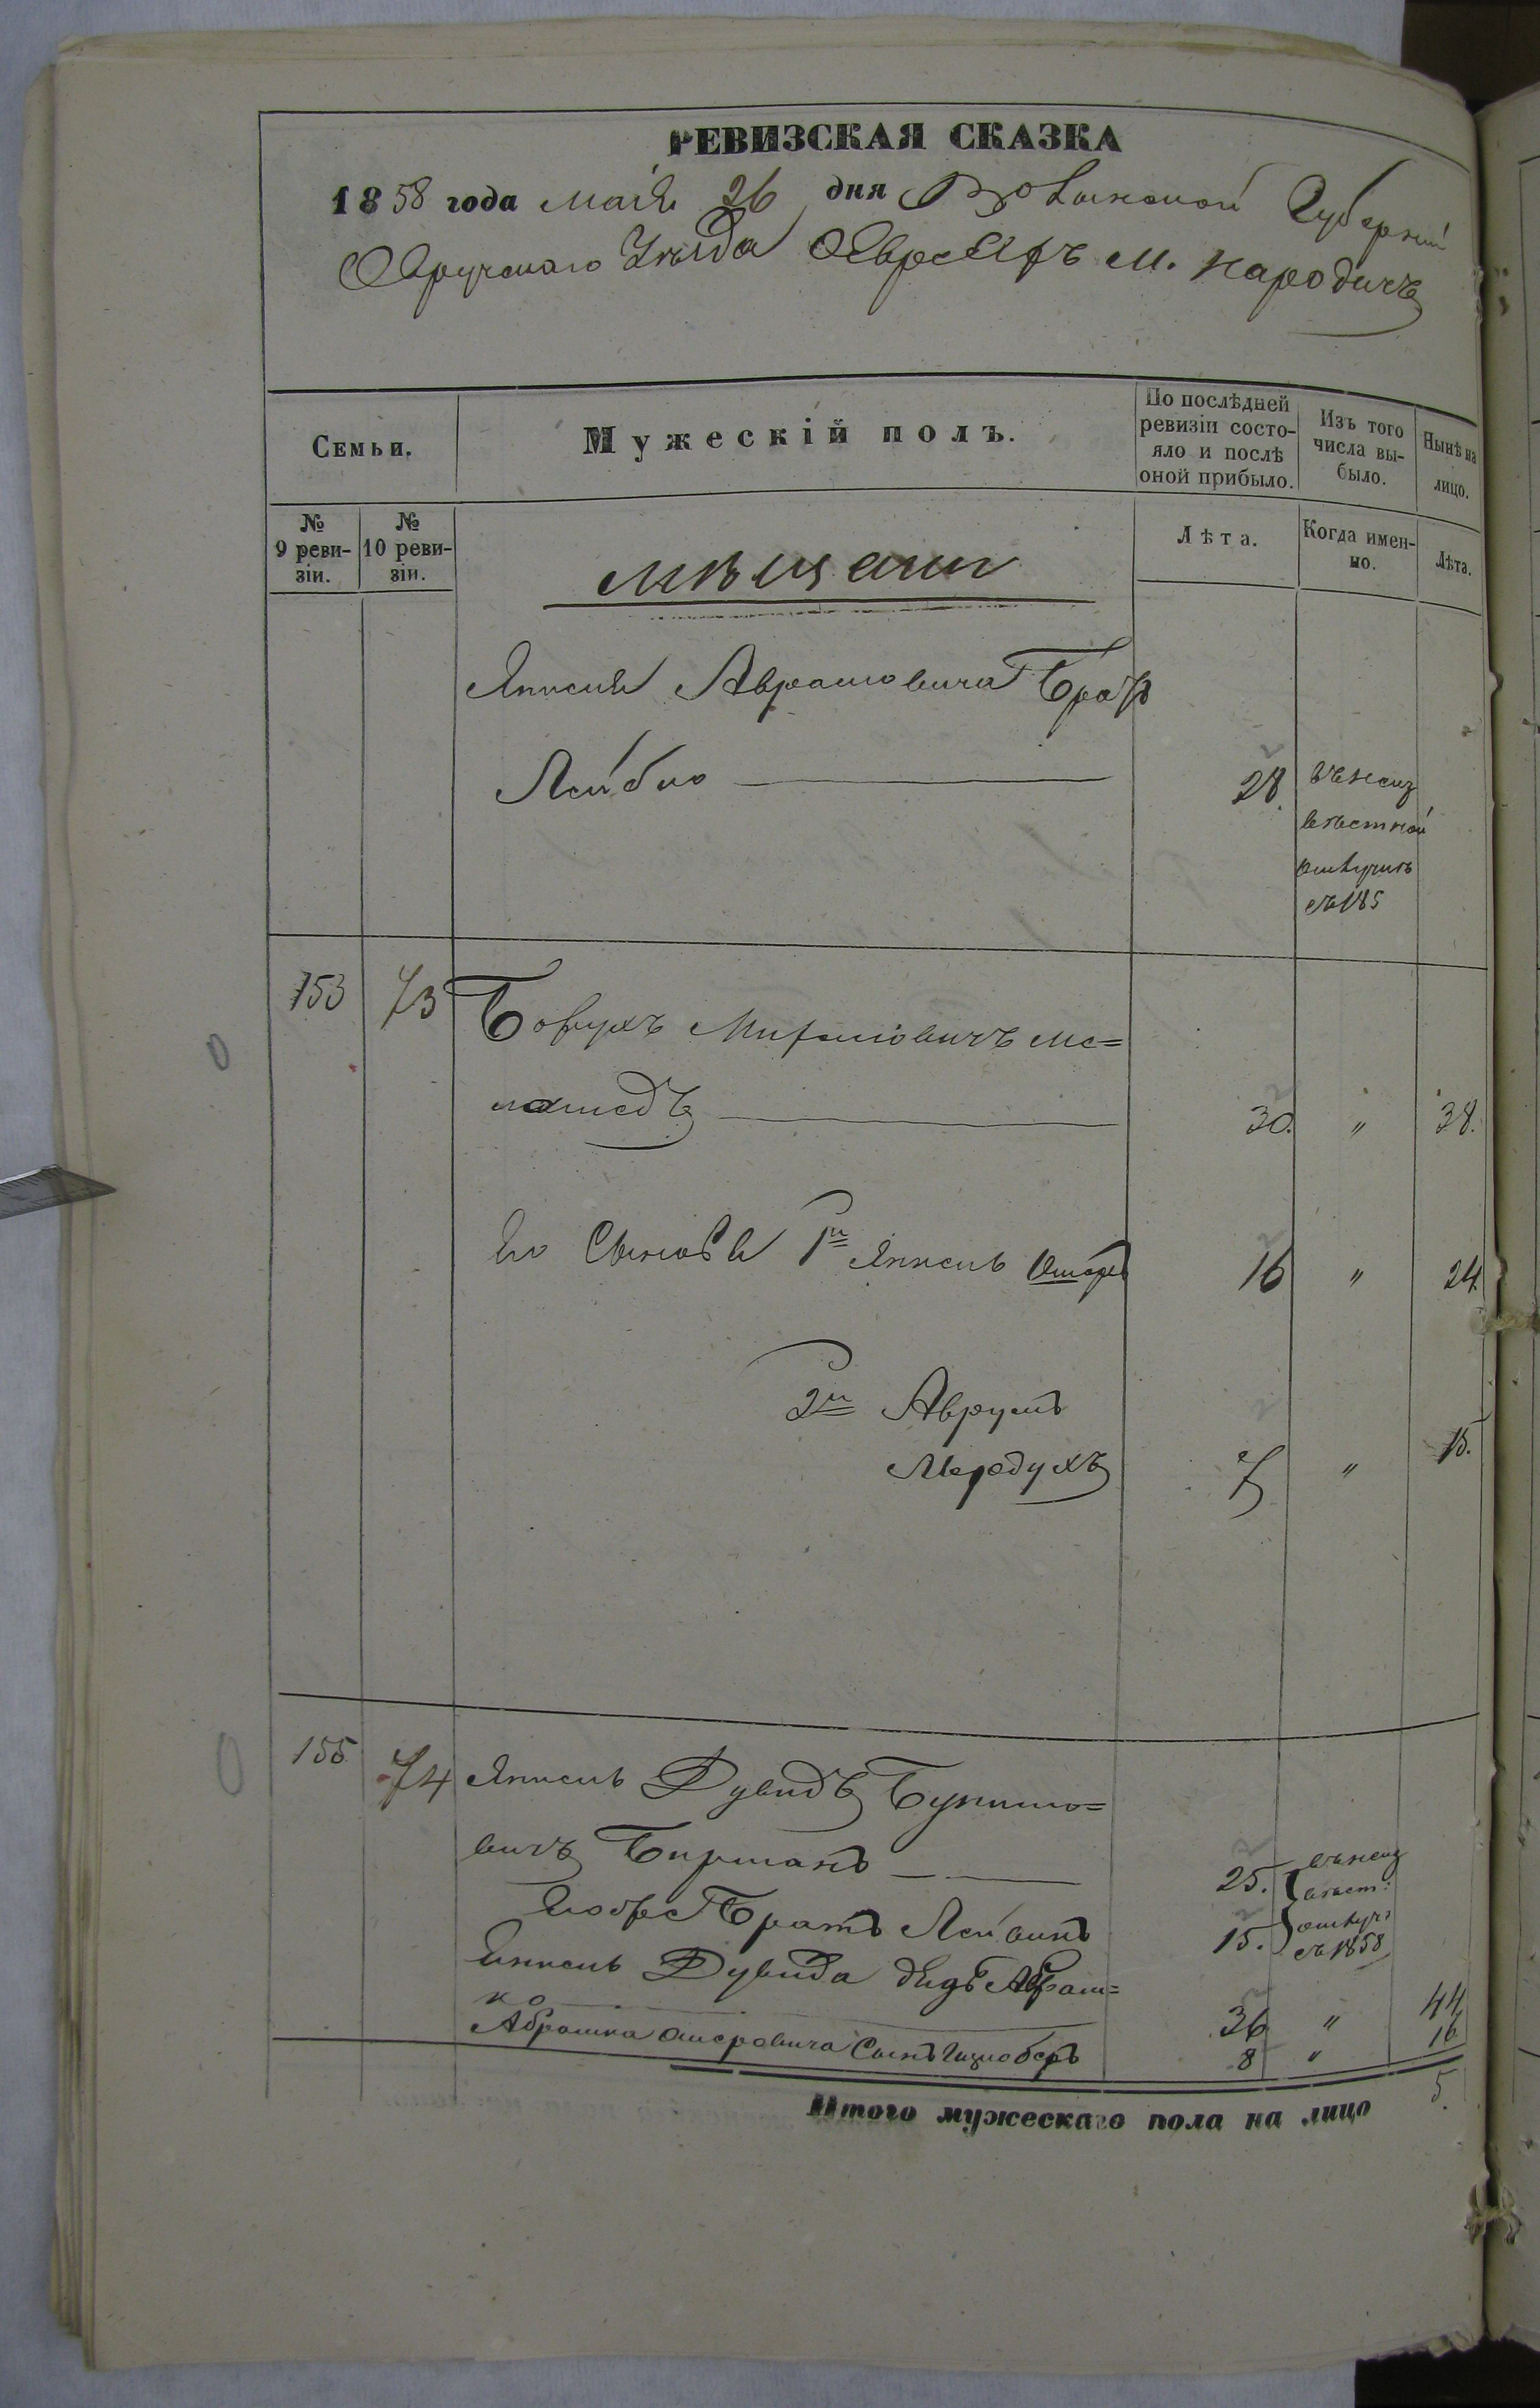 РЕВИЗСКАЯ СКАЗКА
1858 года маія 26 дня Волынской Губерніи
Овручскаго Уѣзда О Евреяхъ м. Народичъ
Семьи.
Мужескій полъ.
По послѣдней ревизіи состояло и послѣ оной прибыло.
Изъ того числа выбыло.
Нынѣ на лицо.
№ 9 ревизіи.
№ 10 ревизіи.
мѣщане
Лѣта.
Когда именно.
Лѣта.
Янкеля Аврамовича Братъ
Лейбко 28 въ неиз
вѣстной
отлучкѣ
съ 185
153 73 Борухъ Мс=
ламедъ 30. " 38.
Его Сыновья 1й Янкель 16 " 24.
2й Аврумъ
Мордухъ 7 " 15.
155 74 Янкель Дувидъ
вичъ Бирманъ 25. въ неиз
вѣст:
Его Братъ Лейвикъ 15. отлуч:
съ 1858
Янкель Дувида дядя Абраш=
ко 36 " 44
Абрашка Ошеровича Сынъ 8 " 16
Итого мужескаго пола на лицо 5.